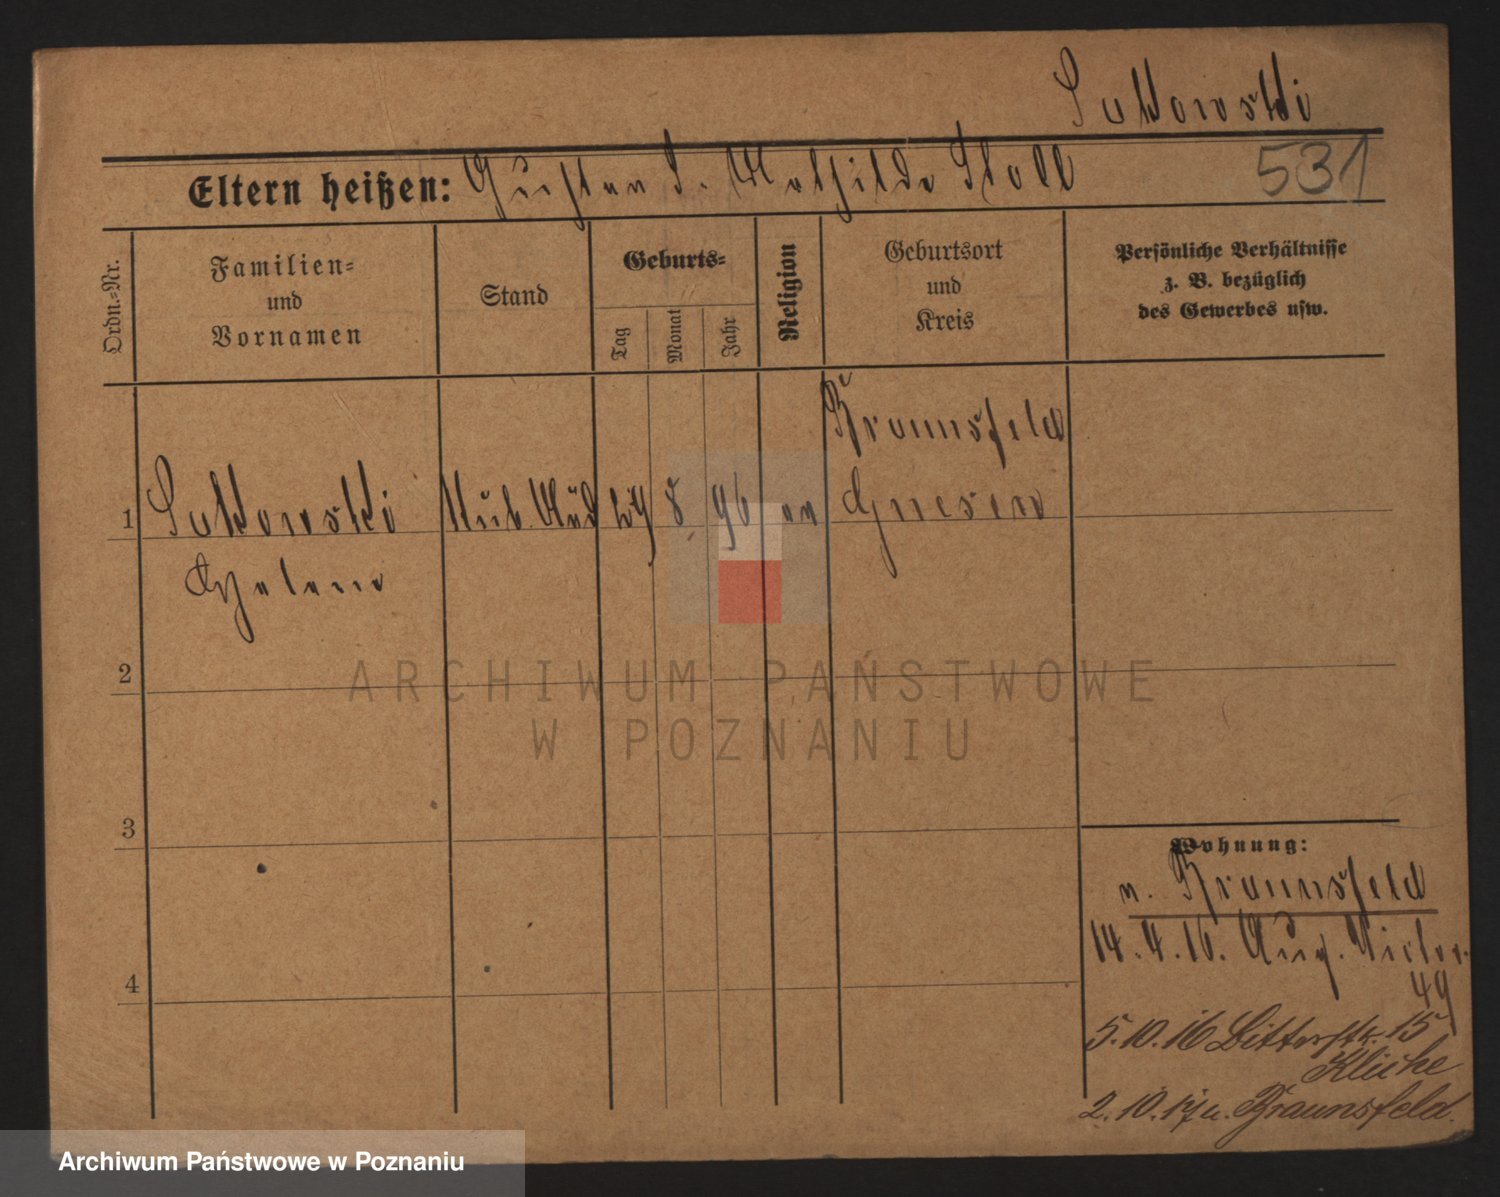 Sukowski
Eltern heißen: Gustav S. Mathilde Stoll 531
Ordn.=Nr.
Familien=
und
Vornamen
Stand
Geburts=
Tag
Monat
Jahr
Religion
Geburtsort
und
Kreis
Persönliche Verhältnisse
z. B. bezüglich
des Gewerbes usw.
Braunsfeld
1 8 96 ev Gnesen
Helene
2
ARCHIWUM PAŃSTWOWE
W POZNANIU
3
Wohnung:
n. Braunsfeld
14.4.16. Aug. Victor.
49
4
5.10.16 Ritterstr. 15
2.10.17 n. Braunsfeld.
Archiwum Państwowe w Poznaniu